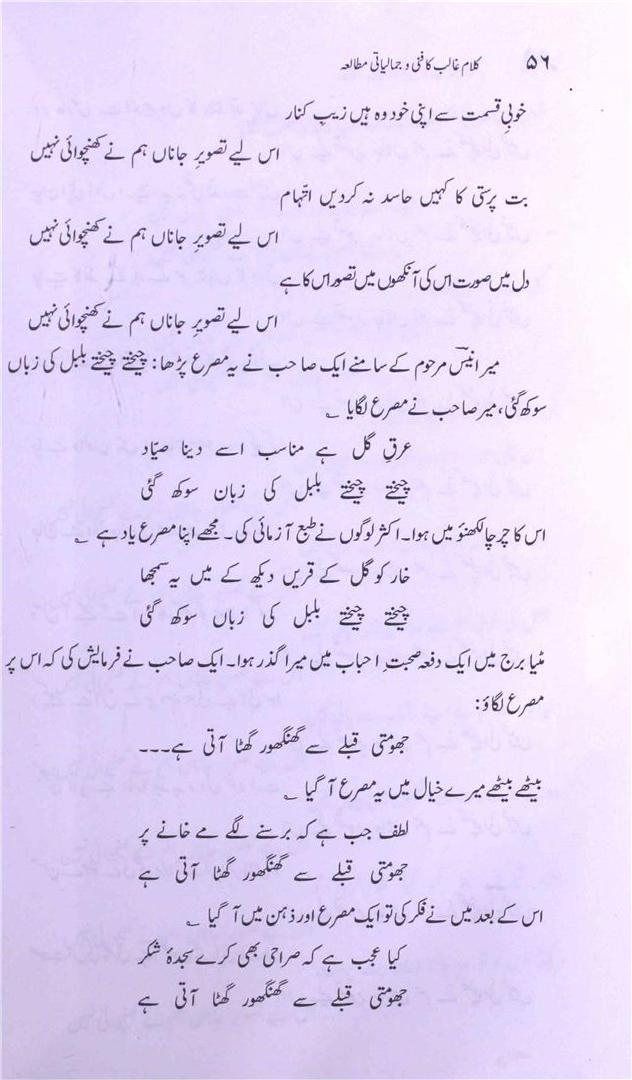 ۵۶ کلام غالب کا فنی و جمالیاتی مطالعہ
خوبیِ قسمت سے اپنی خود وہ ہیں زیبِ کنار
اس لیے تصویرِ جاناں ہم نے کھنچوائی نہیں
بت پرستی کا کہیں حاسد نہ کردیں اتّہام
اس لیے تصویرِ جاناں ہم نے کھنچوائی نہیں
دل میں صورت اس کی آنکھوں میں تصور اس کا ہے
اس لیے تصویرِ جاناں ہم نے کھنچوائی نہیں
میر انیسؔ مرحوم کے سامنے ایک صاحب نے یہ مصرع پڑھا: چیختے چیختے بلبل کی زباں
سوکھ گئی، میر صاحب نے مصرع لگایا ؎
عرقِ گل ہے مناسب اسے دینا صیّاد
چیختے چیختے بلبل کی زبان سوکھ گئی
اس کا چرچا لکھنؤ میں ہوا۔ اکثر لوگوں نے طبع آزمائی کی۔ مجھے اپنا مصرع یاد ہے ؎
خار کو گل کے قریں دیکھ کے میں یہ سمجھا
چیختے چیختے بلبل کی زباں سوکھ گئی
مٹیا برج میں ایک دفعہ صحبتِ احباب میں میرا گذر ہوا۔ ایک صاحب نے فرمایش کی کہ اس پر
مصرع لگاؤ:
جھومتی قبلے سے گھنگھور گھٹا آتی ہے۔۔۔
بیٹھے بیٹھے میرے خیال میں یہ مصرع آ گیا ؎
لطف جب ہے کہ برسنے لگے مے خانے پر
جھومتی قبلے سے گھنگھور گھٹا آتی ہے
اس کے بعد میں نے فکر کی تو ایک مصرع اور ذہن میں آ گیا ؎
کیا عجب ہے کہ صراحی بھی کرے سجدۂ شکر
جھومتی قبلے سے گھنگھور گھٹا آتی ہے